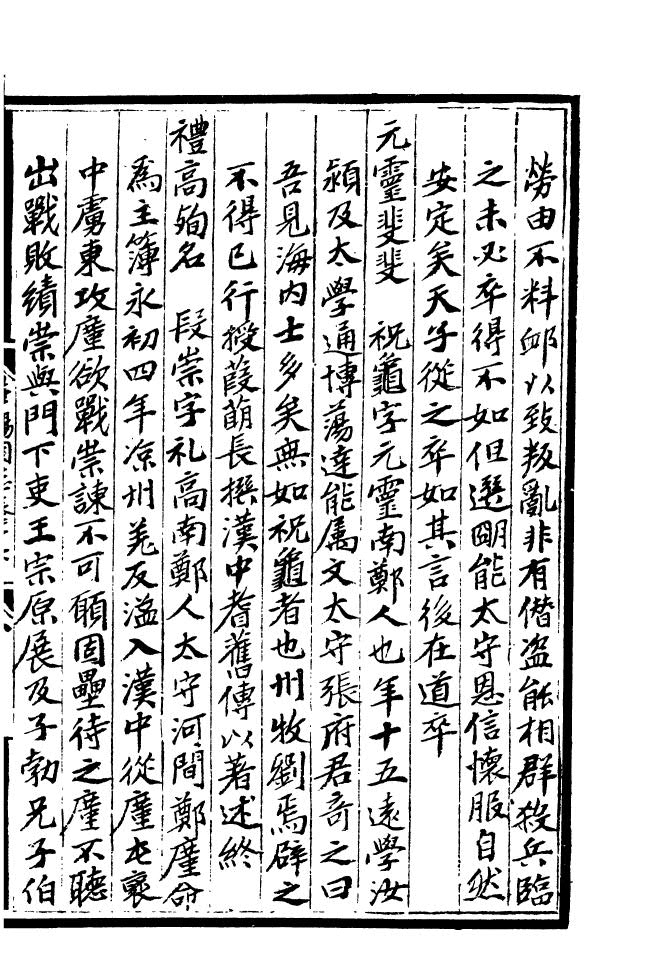 勞由不料䘏以致叛亂非有僭盗能相群殺兵臨
之未必卒得不如但選明能太守恩信懷服自然
安定矣天子從之卒如其言後在道卒
元靈斐斐　祝龜字元靈南鄭人也年十五遠學汝
潁及太學通博蕩達能属文太守張府君奇之曰
吾見海内士多矣無如祝龜者也州牧劉焉辟之
不得已行授葭萌長撰漢中耆舊傳以著述終
禮高殉名　段崇字礼高南鄭人太守河間鄭廑命
為主簿永初四年凉州羌反溢入漢中從廑屯褒
中虜東攻廑欲戰崇諫不可願固壘待之廑不聽
出戰敗績崇與門下吏王宗原展及子勃兄子伯